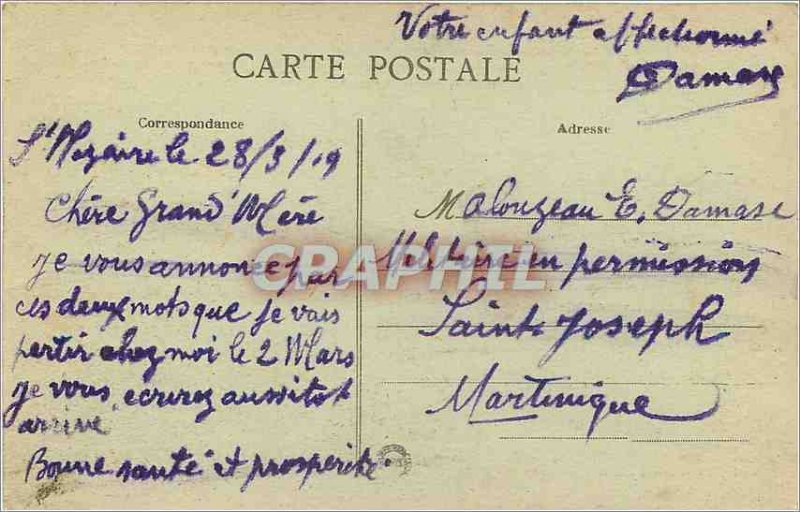 Votre enfant affectionné
Damase
CARTE POSTALE
Correspondance
Adresse
St Nazaire le 28/3/19
Chère Grand'Mère
je vous annonce par
ces deux mots que je vais
partir chez moi le 2 Mars
je vous ecrirez aussitot
arrivé
Bonne santé et prosperité.
M Alonzeau E. Damase
Militaire en permission
Saint Joseph
Martinique
CRAPHIL